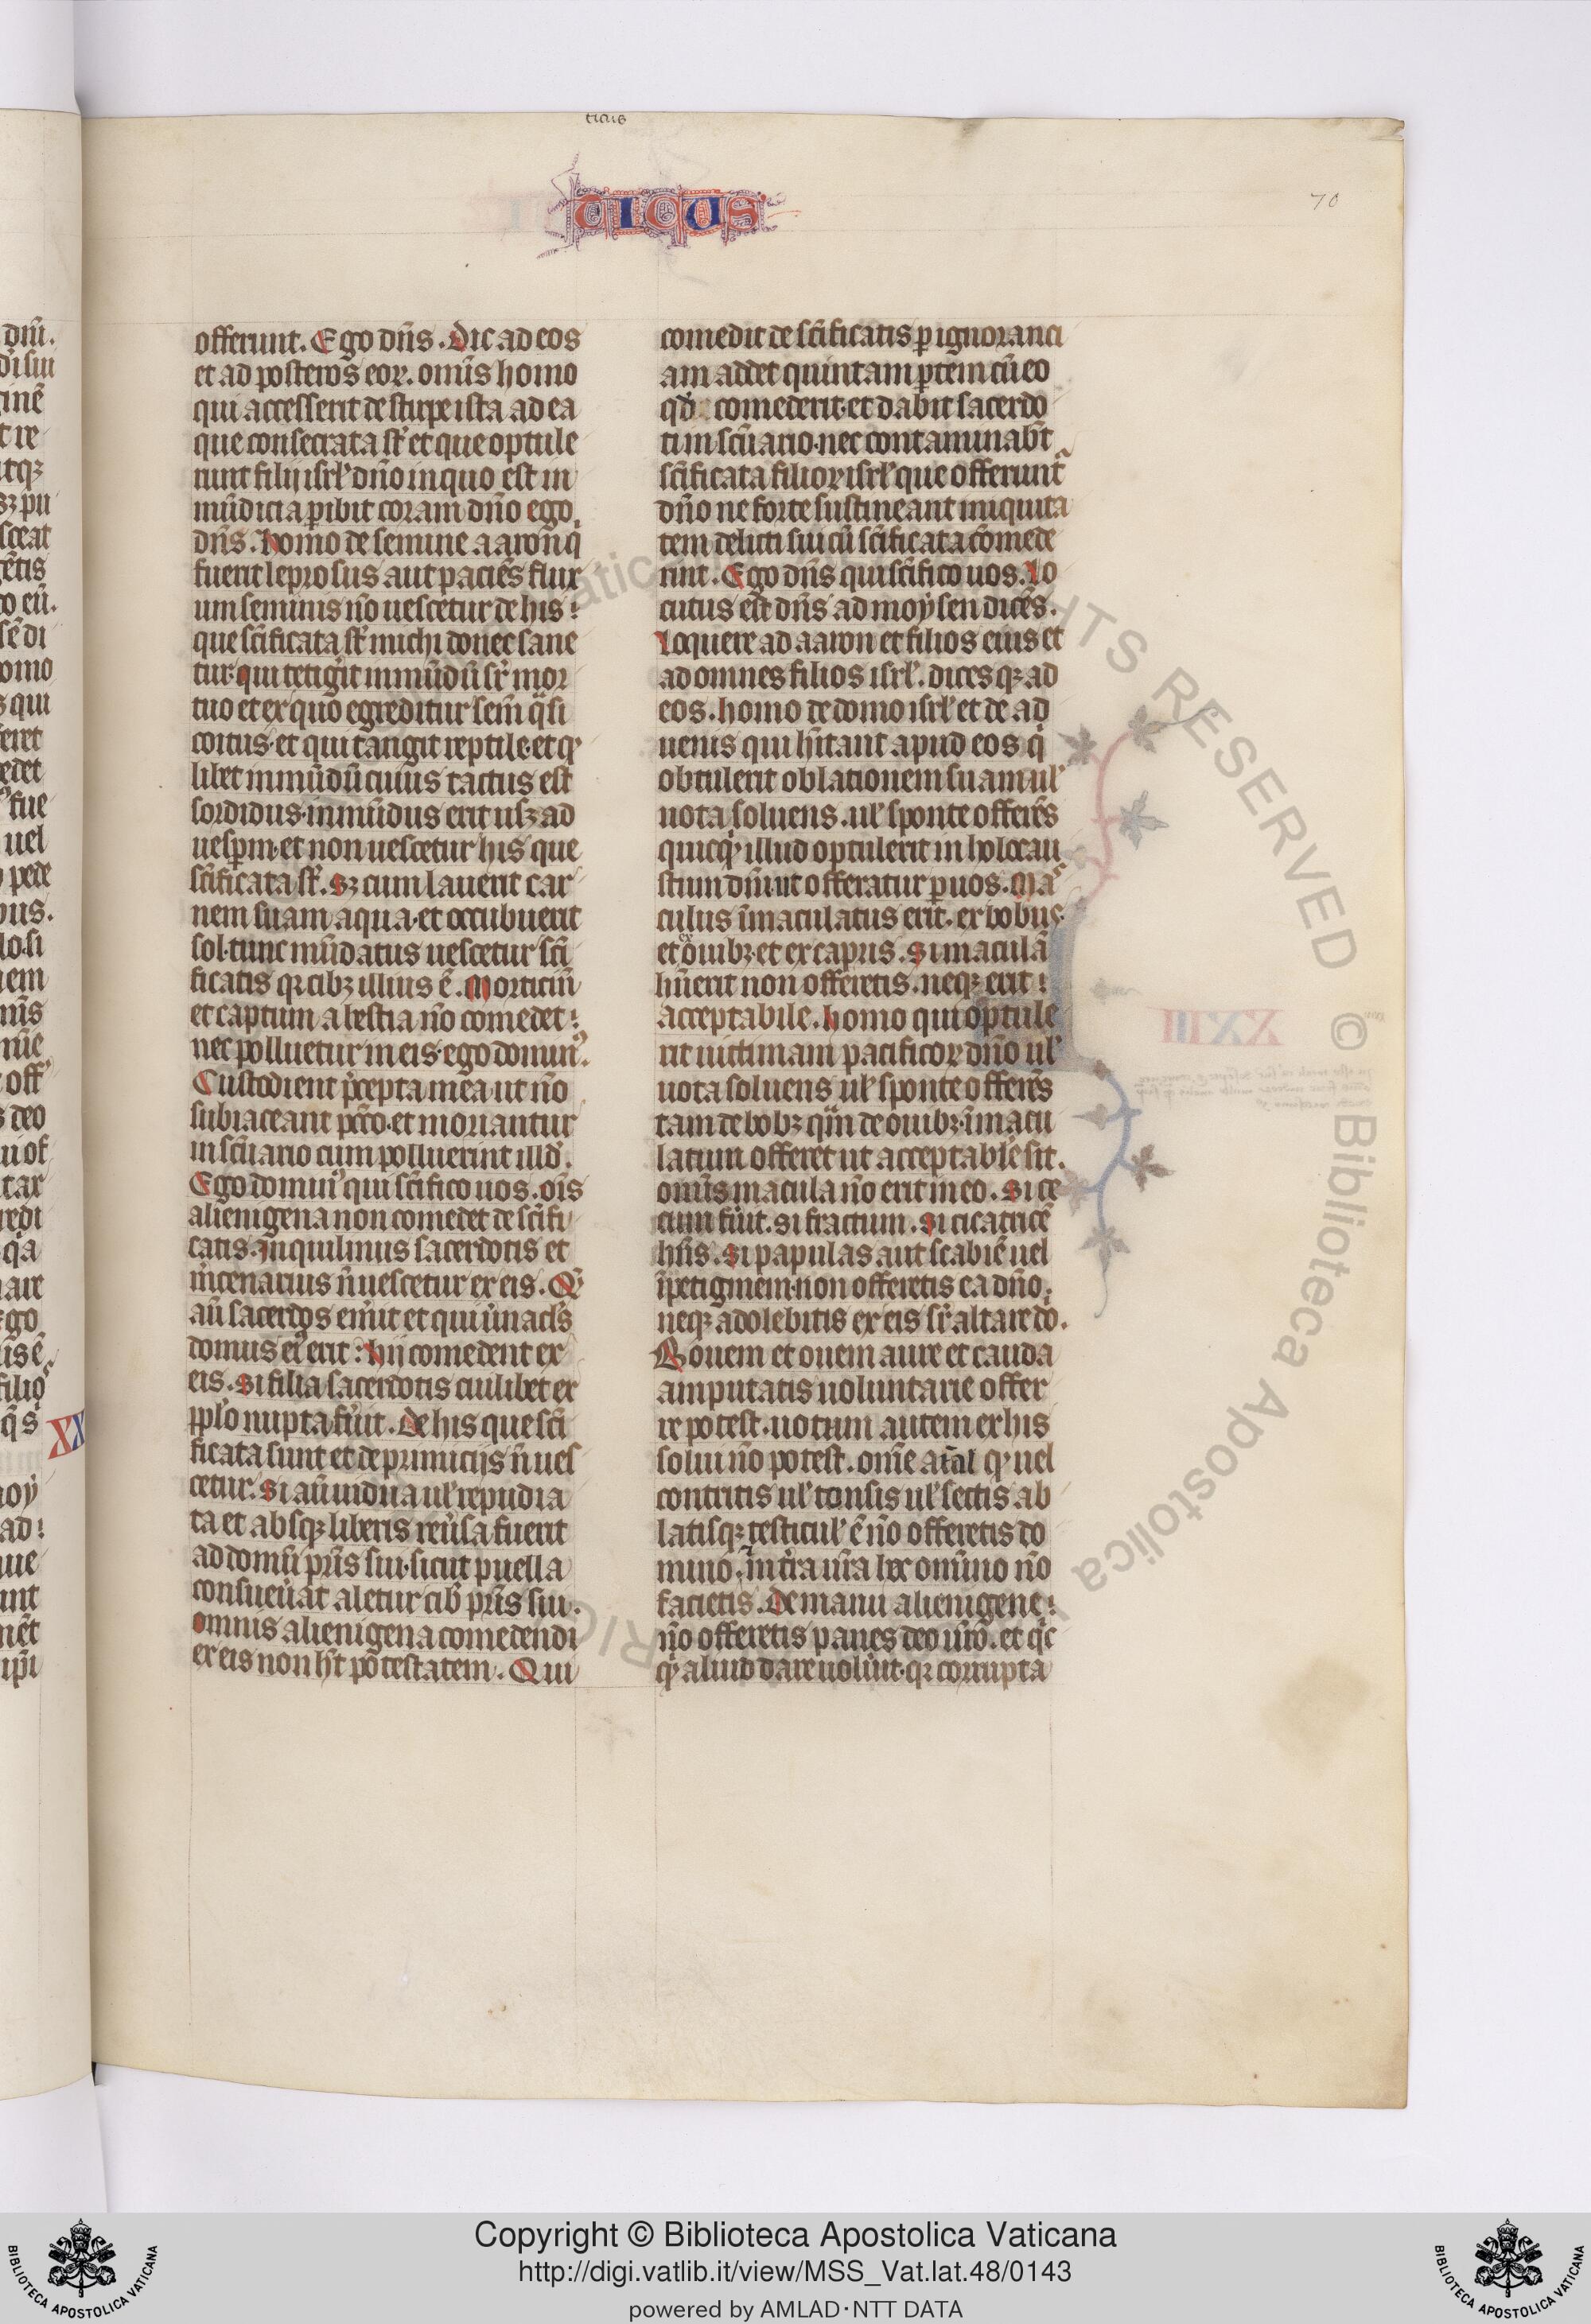 ticus
TICUS
70
offerunt. Ego dn̄s. Dic ad eos
et ad posteros eoꝝ. om̄s homo
qui accesserit de stirpe ista ad ea
que consecrata st̄ et que optule
runt filij isrl̓ dn̄o in quo est in
mūdicia ꝑibit coram dn̄o ego
dn̄s. Homo de semine aaron q̇
fuerit leprosus aut paciēs flux
um seminis nō uescetur de his
que sc̄ificata st̄ michi donec sane
tur. qui tetigit inmūdū sr̄ mor
tuo et ex quo egreditur sem̄ q̄si
coitus. et qui tangit reptile. et qͥ
libet inmūdū cuius tactus est
sordidus. inmūdus erit usꝫ ad
uesꝑm. et non uescetur his que
sc̄ificata st̄. Sꝫ cum lauerit car
nem suam aqua. et occubuerit
sol. tunc mūdatus uescetur sc̄i
ficatis qꝛ cibꝫ illius ē. Morticinū
et captum a bestia nō comedet
nec polluetur in eis. ego dominꝰ.
Custodient p̄cepta mea ut nō
subiaceant pc̄co. et moriantur
in sc̄uario cum polluerint illd̓.
Ego dominꝰ qui sc̄ifico uos. ois̄
alienigena non comedet de sc̄ifi
catis. Inquilinus sacerdotis et
m̓cenarius n̄ uescetur ex eis. Qͤ
aū sacerdos em̓it et qui u̓nacl̓s
domus eiꝰ erit: hij comedent ex
eis. Si filia sacerdotis cuilibet ex
pplo̓ nupta fu̓it. De his que sc̄i
ficata sunt et de primicijs n̄ ues
cetur. Si aū uidua ul̓ repudia
ta et absqꝫ liberis reu̓sa fuerit
ad domū pr̄is sui. sicut puella
consueu̓at aletur cib̓ pr̄is sui.
omnis alienigena comedendi
ex eis non ht̄ potestatem. Qui
comedit de sc̄ificatis ꝑ ignoranci
am addet quintam ꝑtem cū eo
qd̓ comederit. et dabit sacerdo
ti in sc̄uario. nec contaminabt̄
sc̄ificata filioꝝ isrl̓ que offerunt
dn̄o ne forte sustineant iniquita
tem delicti sui cū sc̄ificata cōmede
rint. Ego dn̄s qui sc̄ifico uos. Lo
cutus est dn̄s ad moysen dicēs.
Loquere ad aaron et filios eius et
ad omnes filios isrl̓. dicesqꝫ ad
eos. homo de domo isrl̓ et de ad
uenis qui hītant apud eos q̇
obtulerit oblationem suam ul̓
uota soluens. ul̓ sponte offerēs
quicqͥd illud optulerit in holocau
stum dn̄i. ut offeratur ꝑ uos. Mas
culus īmaculatus erit. ex bobus
et ouibꝫ. et ex capris. Si maculā
hu̓erit non offeretis. neqꝫ erit
acceptabile. homo qui optule
rit uictimam pacificoꝝ dn̄o ul̓
uota soluens ul̓ sponte offerēs
tam de bobꝫ qm̄ de ouibꝫ. īmacu
latum offeret ut acceptabl̓e sit.
om̄s macula nō erit in eo. Si ce
cum fu̓it. si fractum. si cicatricē
hn̄s. Si papulas aut scabiē uel
īpetiginem. non offeretis ea dn̄o.
neqꝫ adolebitis ex eis sr̄ altare do.
Bouem et ouem aure et cauda
amputatis uoluntarie offer
re potest. uotum autem ex his
solui nō potest. om̄e aīal qͥ uel
contritis ul̓ tonsis ul̓ sectis ab
latisqꝫ testicul̓ ē nō offeretis do
mino. in t̓ra ur̄a hoc omnino nō
facietis. De manu alienigene
nō offeretis panes deo uro̅. et qͥc
qͥd aliud dare uolu̓it. qꝛ corrupta
XX
Copyright © Biblioteca Apostolica Vaticana
http://digi.vatlib.it/view/MSS_Vat.lat.48/0143
powered by AMLAD·NTT DATA
BIBLIOTECA APOSTOLICA VATICANA
BIBLIOTECA APOSTOLICA VATICANA